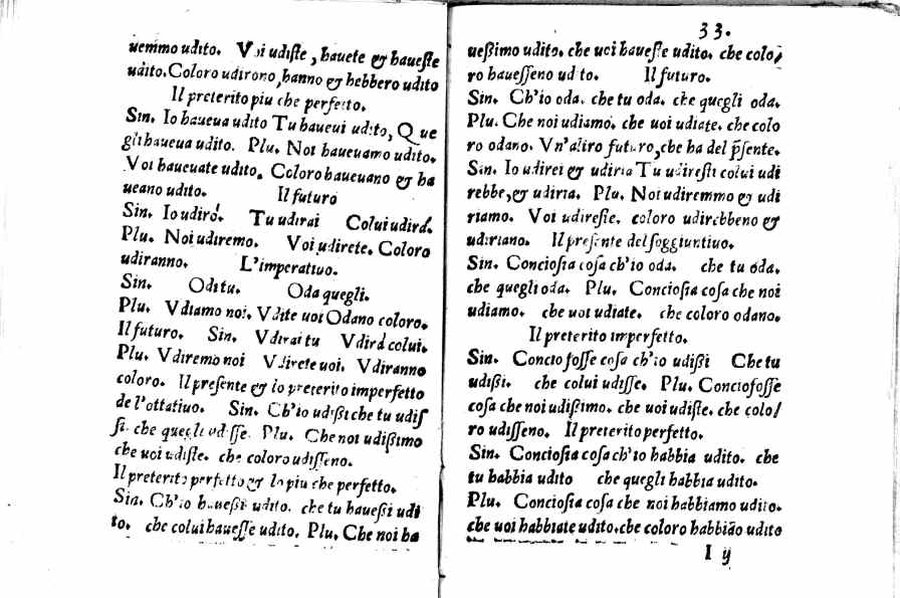 uemmo udito. Voi udiste, hauete & haueste
udito. Coloro udirono, hanno & hebbero udito
Il preterito piu che perfetto.
Sin. Io haueua udito Tu haueui udito, Que
gli haueua udito. Plu. Noi haueuamo udito.
Voi haueuate udito. Coloro haueuano & ha
ueano udito. Il futuro
Sin. Io udirò. Tu udirai Colui udirà.
Plu. Noi udiremo. Voi udirete. Coloro
udiranno. L'imperatiuo.
Sin. Odi tu. Oda quegli.
Plu. Vdiamo noi. Vdite uoi Odano coloro.
Il futuro. Sin. Vdirai tu Vdirà colui.
Plu. Vdiremo noi Vdirete uoi. Vdiranno
coloro. Il presente & lo preterito imperfetto
de l'ottatiuo. Sin. Ch'io udißi che tu udiſ
ſi. che quegli udiſſe. Plu. Che noi udißimo
che uoi udiſte. che coloro udiſſeno.
Il preterito perfetto & lo piu che perfetto.
Sin. Ch'io haueßi udito. che tu haueßi udi
to. che colui haueſſe udito. Plu. Che noi ha
33.
ueßimo udito. che uoi haueſte udito. che colo/
ro haueſſeno udito. Il futuro.
Sin. Ch'io oda. che tu oda. che quegli oda.
Plu. Che noi udiamo. che uoi udiate. che colo
ro odano. Vn'altro futuro, che ha del p̃ſente.
Sin. Io udirei & udiria Tu udireſti colui udi
rebbe, & udiria. Plu. Noi udiremmo & udi
riamo. Voi udireſte. coloro udirebbeno &
udiriano. Il preſente del ſoggiuntiuo.
Sin. Concioſia coſa ch'io oda. che tu oda.
che quegli oda. Plu. Concioſia coſa che noi
udiamo. che uoi udiate. che coloro odano.
Il preterito imperfetto.
Sin. Conciofoſſe coſa ch'io udißi Che tu
udißi. che colui udiſſe. Plu. Conciofoſſe
coſa che noi udißimo. che uoi udiſte. che colo/
ro udiſſeno. Il preterito perfetto.
Sin. Concioſia coſa ch'io habbia udito. che
tu habbia udito che quegli habbia udito.
Plu. Concioſia coſa che noi habbiamo udito.
che uoi habbiate udito. che coloro habbiāo udito
I y